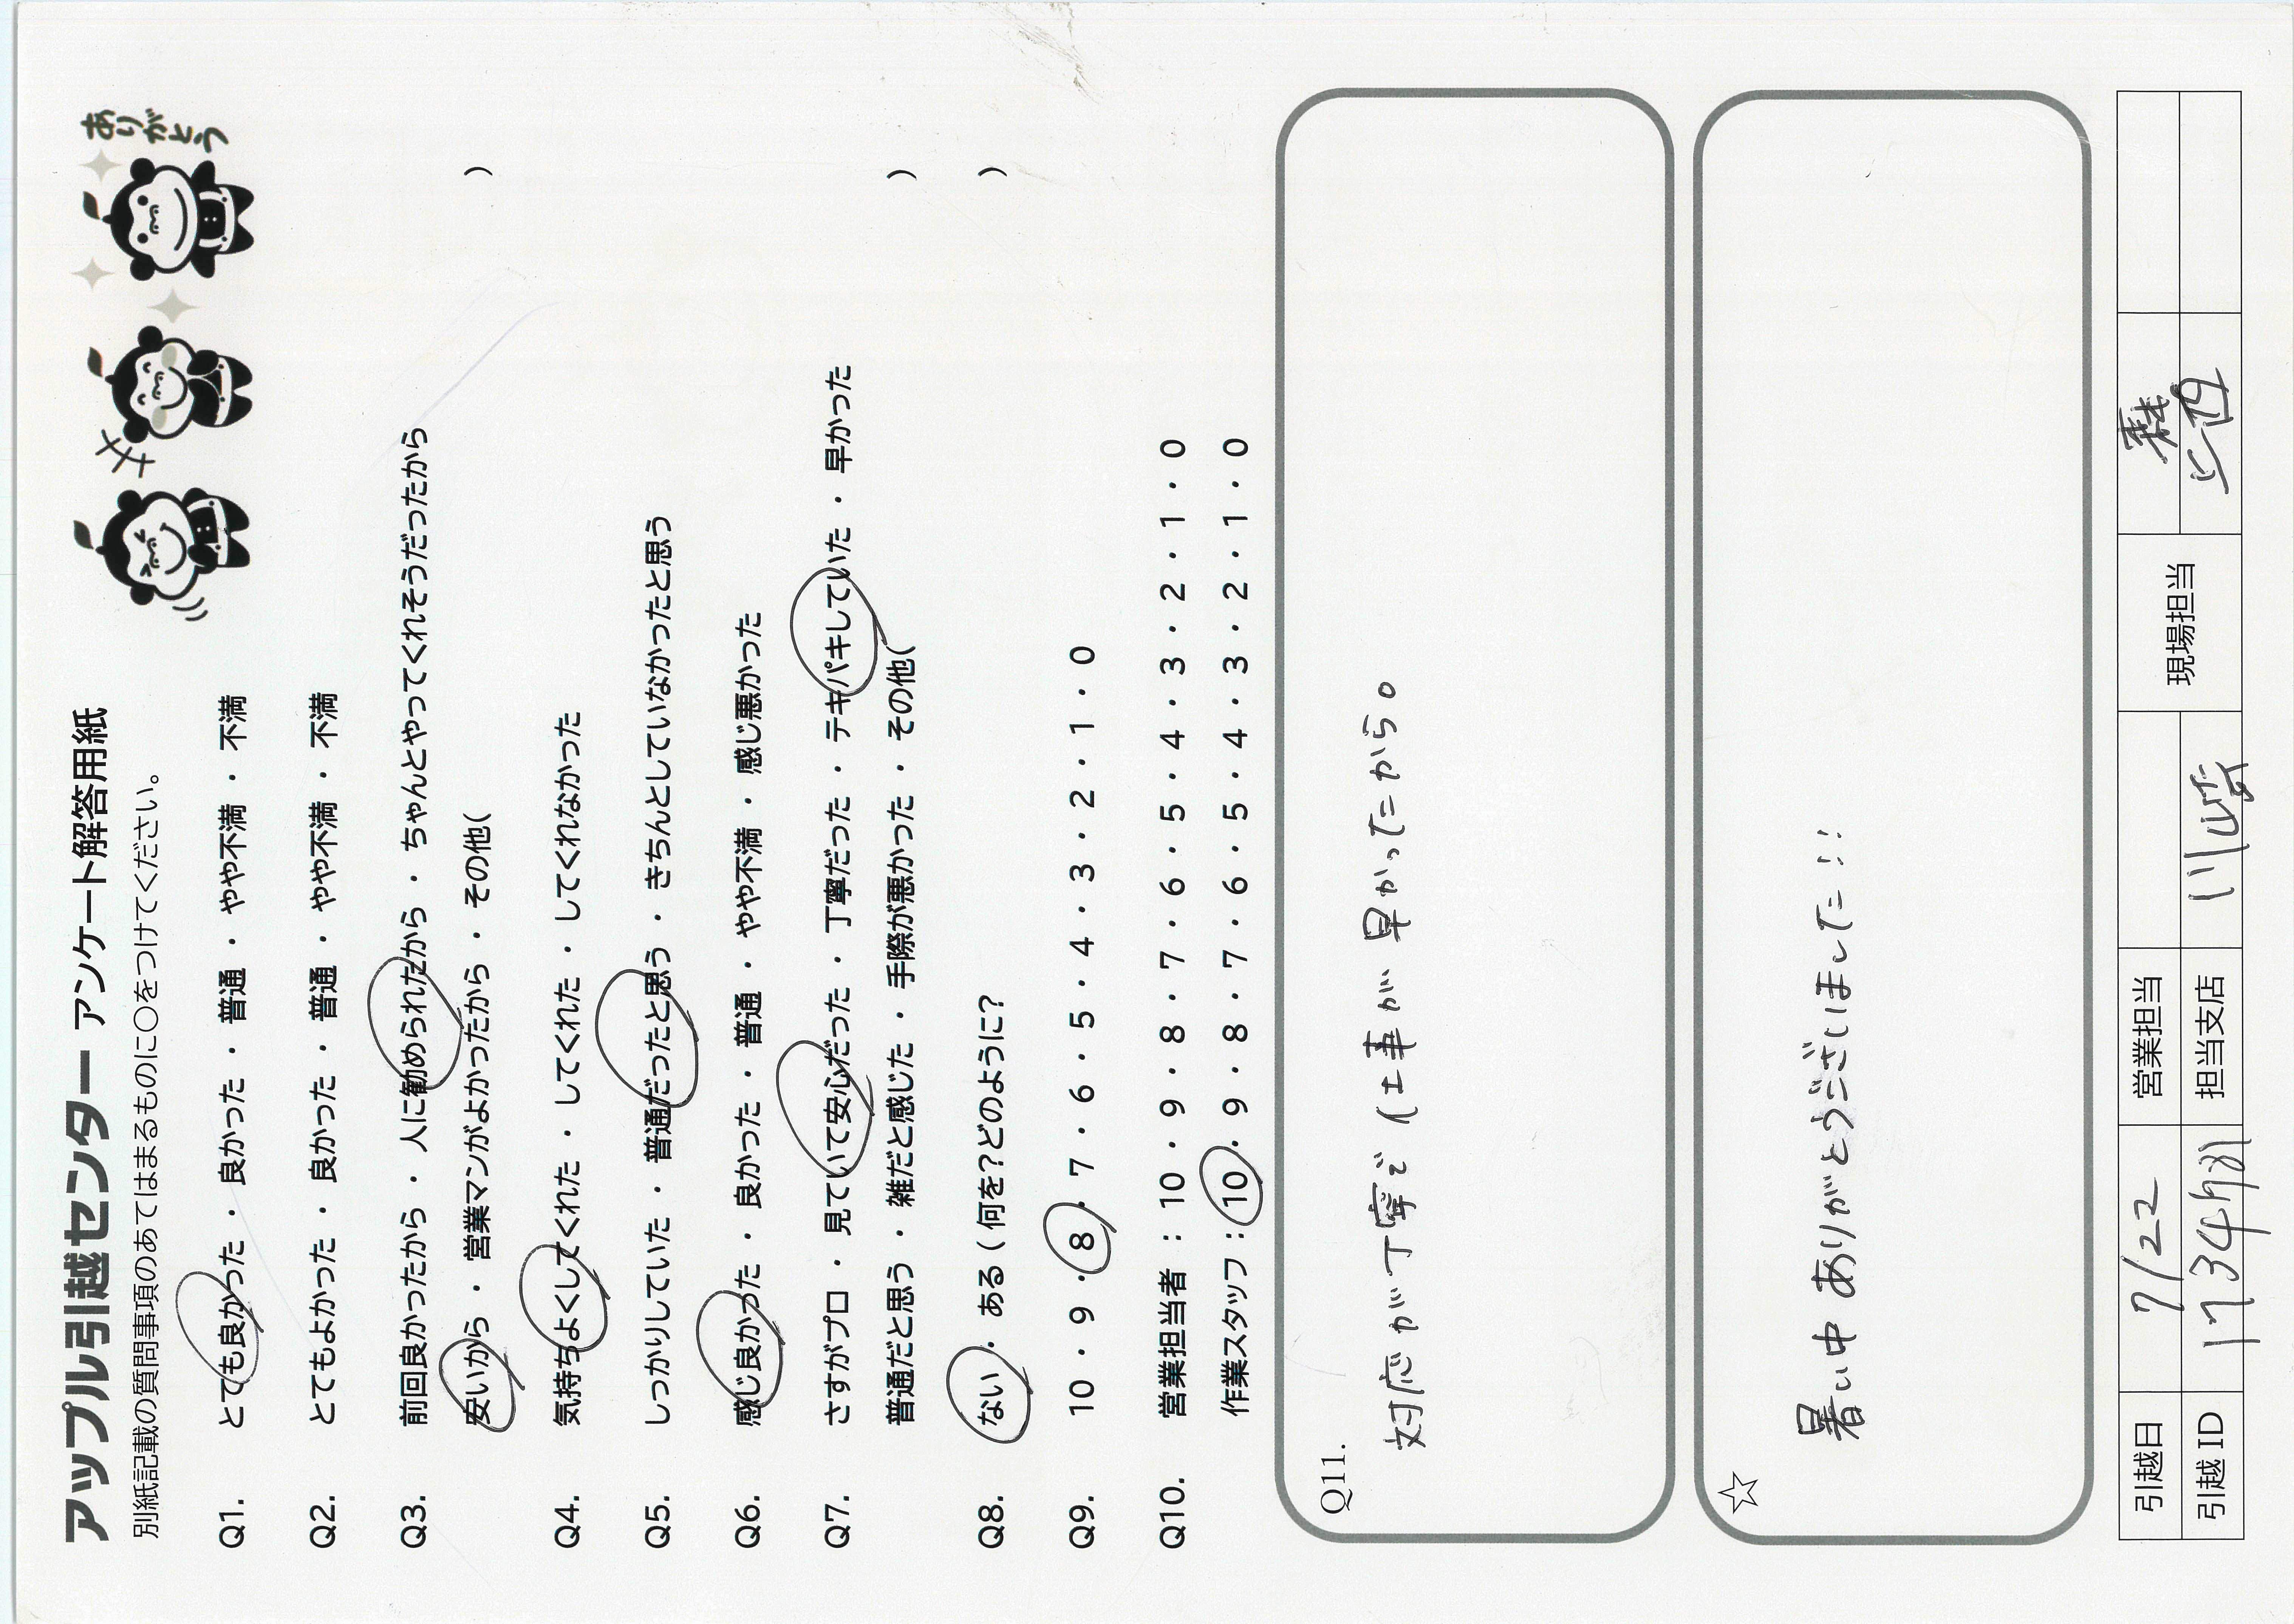 アップル引越センター アンケート解答用紙
別紙記載の質問事項のあてはまるものに○をつけてください。
ありがとう
Q1. とても良かった ・ 良かった ・ 普通 ・ やや不満 ・ 不満
Q2. とてもよかった ・ 良かった ・ 普通 ・ やや不満 ・ 不満
Q3. 前回良かったから ・ 人に勧められたから ・ ちゃんとやってくれそうだったから
安いから ・ 営業マンがよかったから ・ その他( )
Q4. 気持ちよくしてくれた ・ してくれた ・ してくれなかった
Q5. しっかりしていた ・ 普通だったと思う ・ きちんとしていなかったと思う
Q6. 感じ良かった ・ 良かった ・ 普通 ・ やや不満 ・ 感じ悪かった
Q7. さすがプロ ・ 見ていて安心だった ・ 丁寧だった ・ テキパキしていた ・ 早かった
普通だと思う ・ 雑だと感じた ・ 手際が悪かった ・ その他( )
Q8. ない ・ ある ( 何を?どのように? )
Q9. 10 ・ 9 ・ 8 ・ 7 ・ 6 ・ 5 ・ 4 ・ 3 ・ 2 ・ 1 ・ 0
Q10. 営業担当者 : 10 ・ 9 ・ 8 ・ 7 ・ 6 ・ 5 ・ 4 ・ 3 ・ 2 ・ 1 ・ 0
作業スタッフ : 10 ・ 9 ・ 8 ・ 7 ・ 6 ・ 5 ・ 4 ・ 3 ・ 2 ・ 1 ・ 0
Q11.
対応が丁寧で 仕事が 早かったから。
☆
暑い中 ありがとうございました!!!
引越日 7/22 営業担当 現場担当
引越 ID 担当支店 川崎